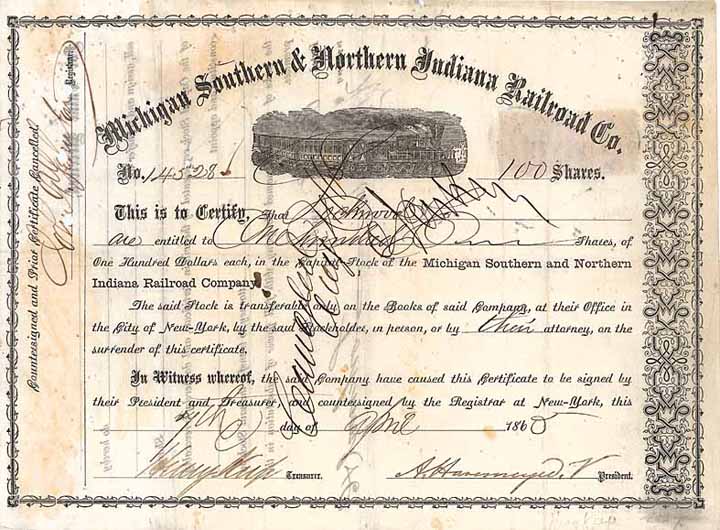 Michigan Southern & Northern Indiana Railroad Co.
No. 14528 100 Shares.
This is to Certify, That Lockwood
are entitled to One Hundred Shares, of
One Hundred Dollars each, in the Capital Stock of the Michigan Southern and Northern
Indiana Railroad Company.
The said Stock is transferable only on the Books of said Company, at their Office in
the City of New-York, by the said Stockholder, in person, or by their attorney, on the
surrender of this certificate.
In Witness whereof, the said Company have caused this Certificate to be signed by
their President and Treasurer, and countersigned by the Registrar at New-York, this
7th day of April 1865
Treasurer. President.
Cancelled
Countersigned and Prior Certificate Cancelled,
Registrar.